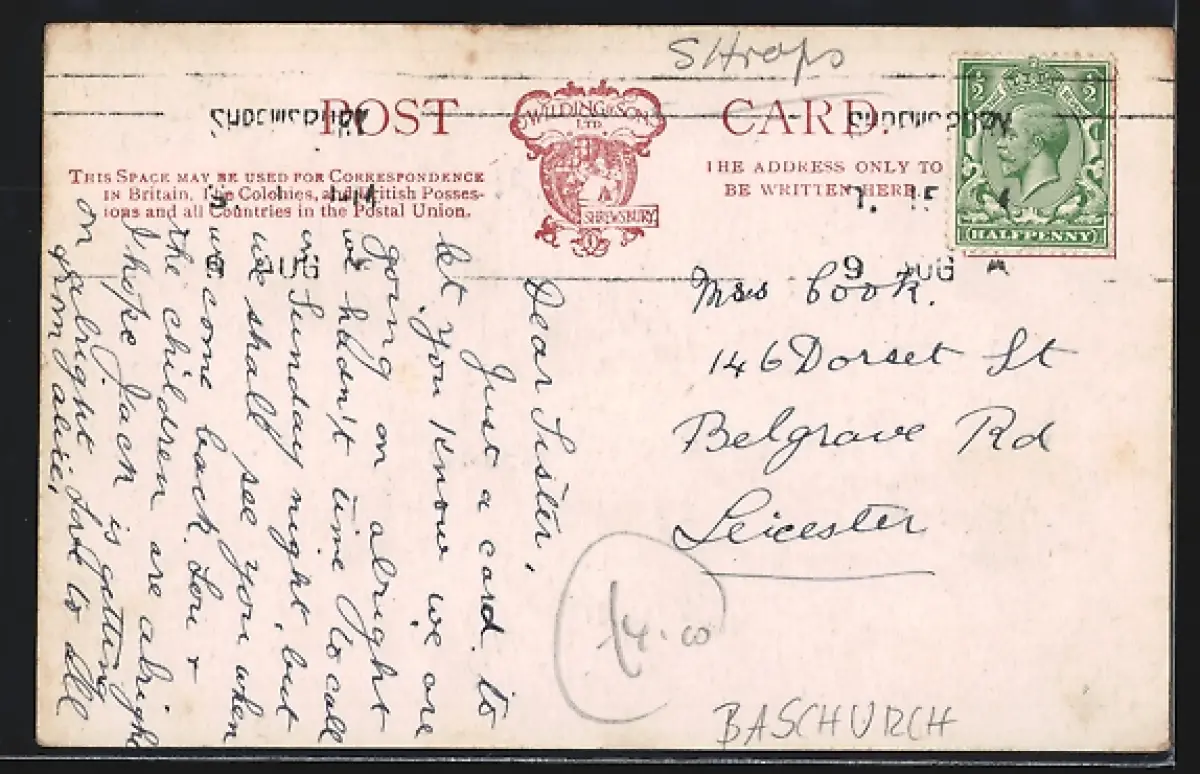 Shrops
POST CARD
WILDING & SON
LTD.
SHREWSBURY
THIS SPACE MAY BE USED FOR CORRESPONDENCE
IN Britain, The Colonies, and British Posses-
ions and all Countries in the Postal Union.
THE ADDRESS ONLY TO
BE WRITTEN HERE.
½ ½
HALFPENNY
9 AUG
Mrs Cook.
146 Dorset St
Belgrave Rd
Leicester
Dear Sister,
Just a card. to
let you know we are
going on alright
we hadn't time to call
on Sunday night, but
we shall see you when
we come back.
the children are alright
I hope Jack is getting
on alright Love to All
from
£4.00
BASCHURCH